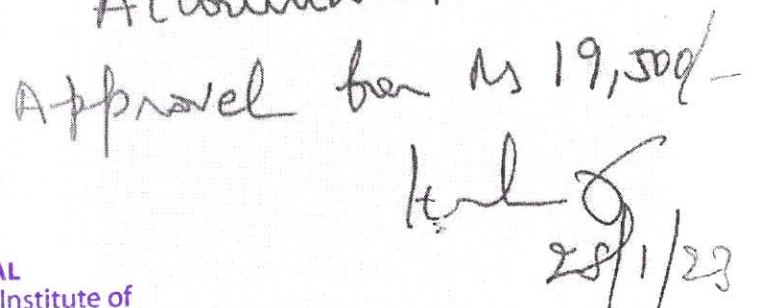 Approvel for Rs 19,500/-
28/1/23
AL
Institute of